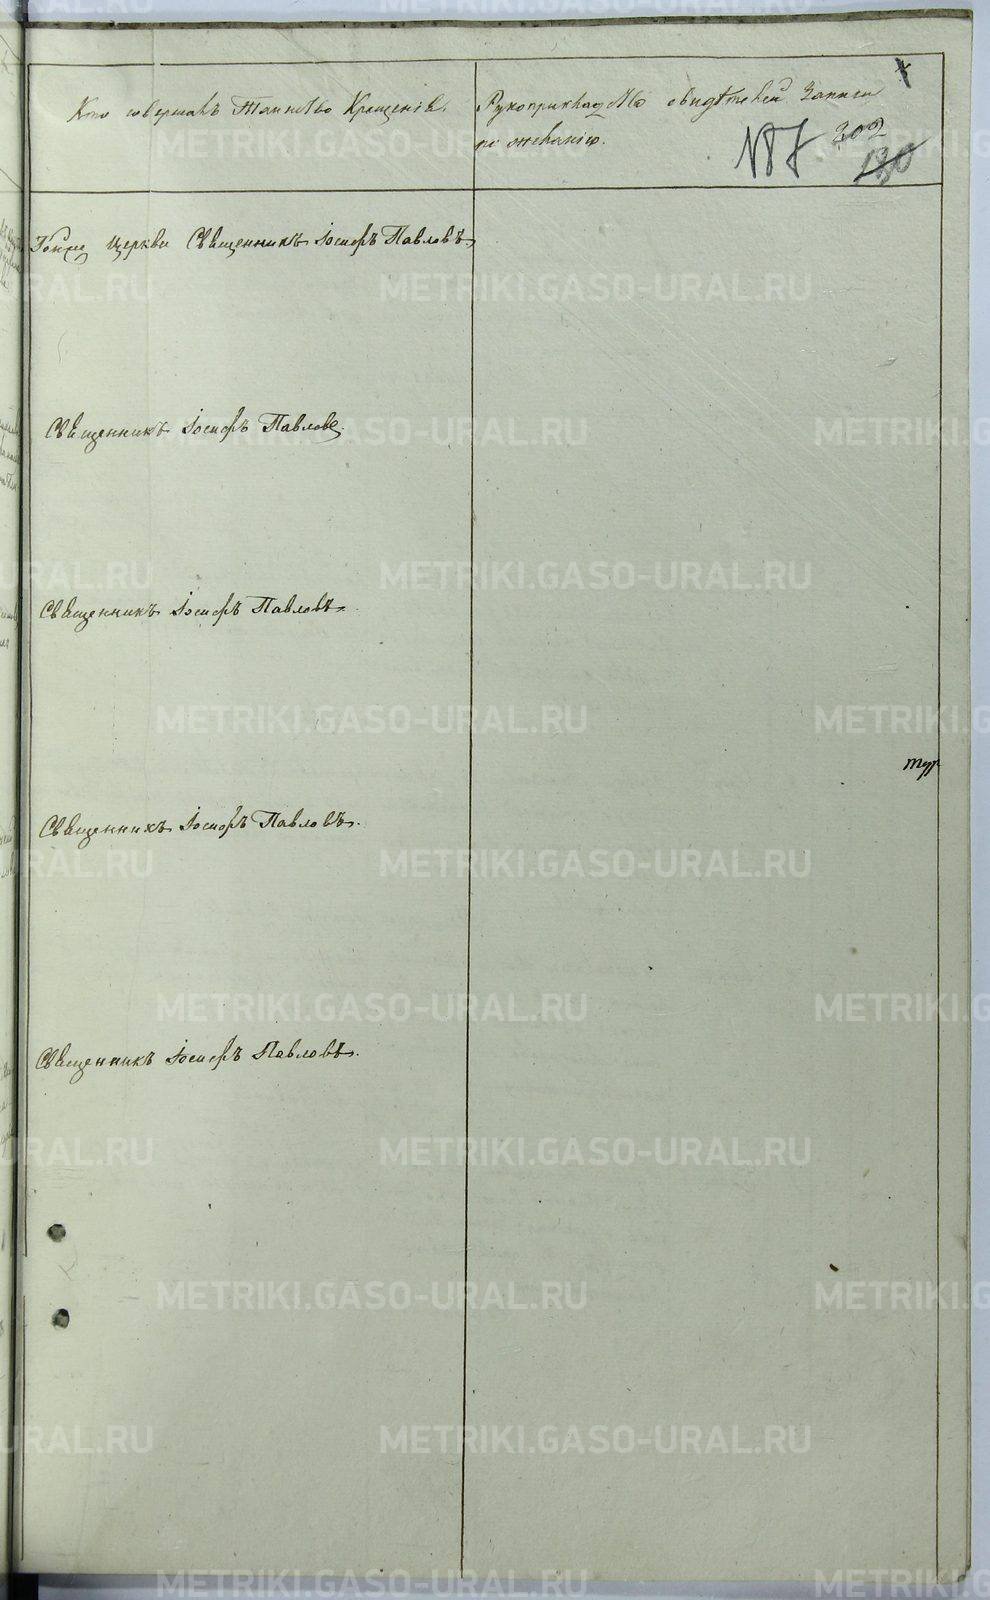 Кто совершалъ Таинство Крещенія.
Рукоприкладство свидѣтелей записи
по желанію.
№ 7
302
130
Тойже Церкви Священникъ Іосифъ Павловъ
Священникъ Іосифъ Павловъ.
Священникъ Іосифъ Павловъ.
Священникъ Іосифъ Павловъ.
Священникъ Іосифъ Павловъ.
METRIKI.GASO-URAL.RU